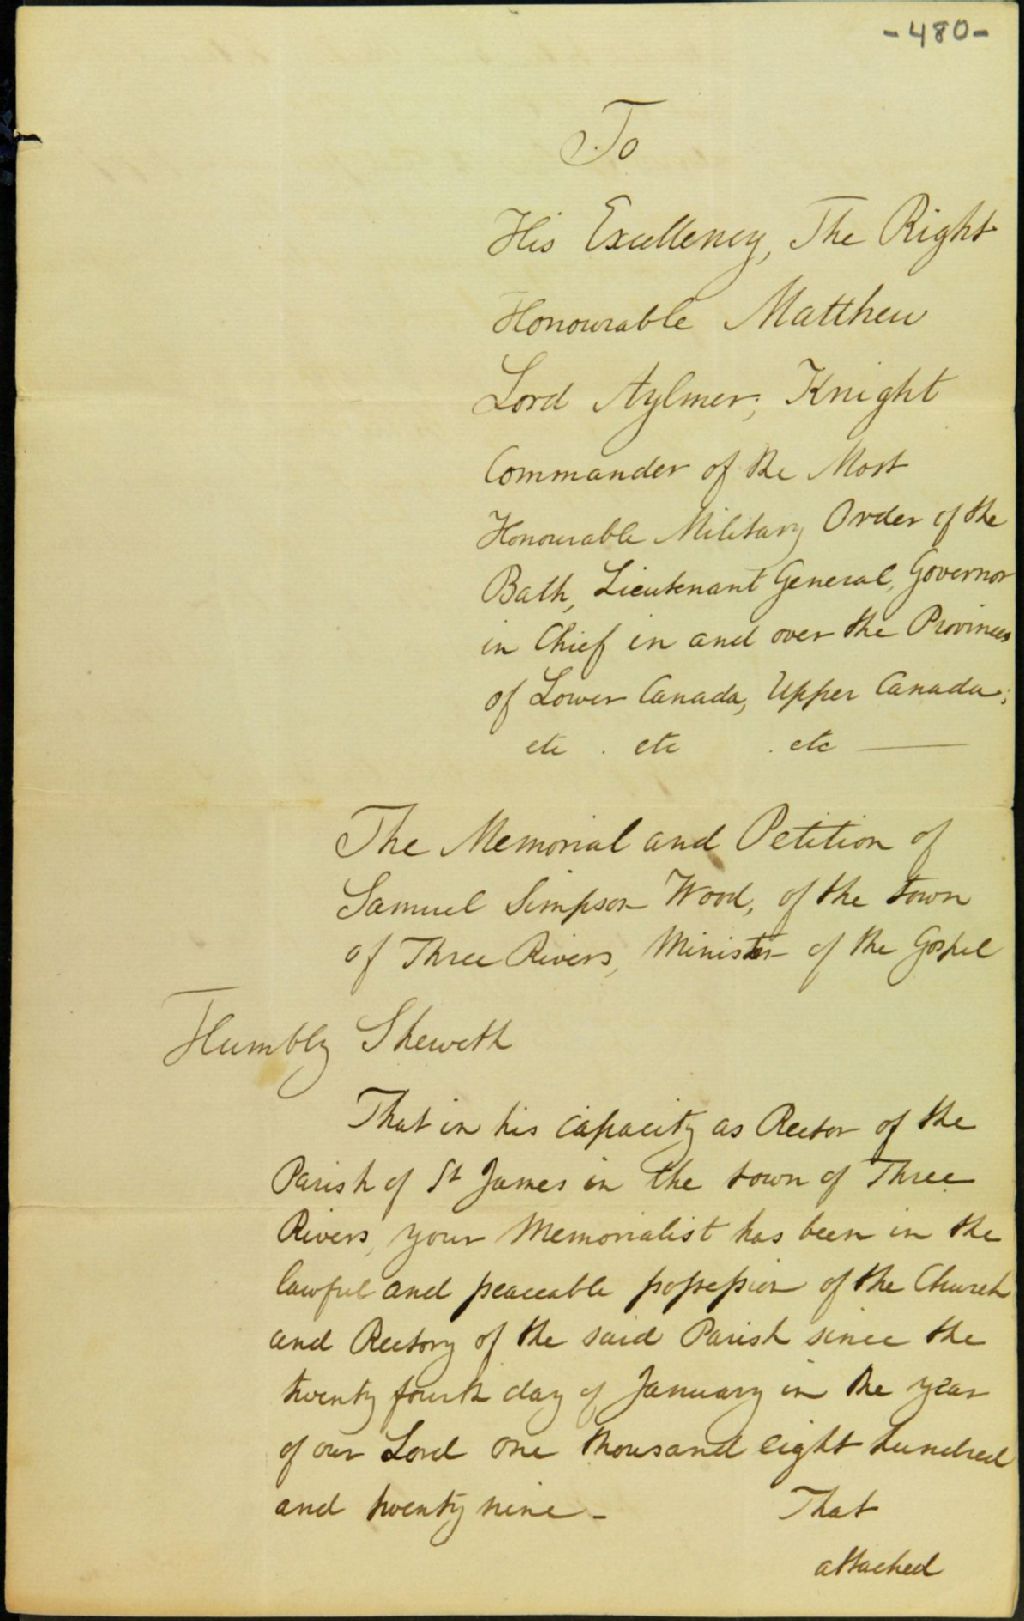 -480-
To
His Excellency, The Right
Honourable Matthew
Lord Aylmer, Knight
Commander of the Most
Honourable Military Order of the
Bath, Lieutenant General, Governor
in Chief in and over the Provinces
of Lower Canada, Upper Canada,
etc . etc . etc —
The Memorial and Petition of
Samuel Simpson Wood, of the town
of Three Rivers, Minister of the Gospel
Humbly Sheweth
That in his capacity as Rector of the
Parish of St James in the town of Three
Rivers, your Memorialist has been in the
lawful and peaceable possession of the Church
and Rectory of the said Parish since the
twenty fourth day of January in the year
of our Lord one thousand eight hundred
and twenty nine - That
attached